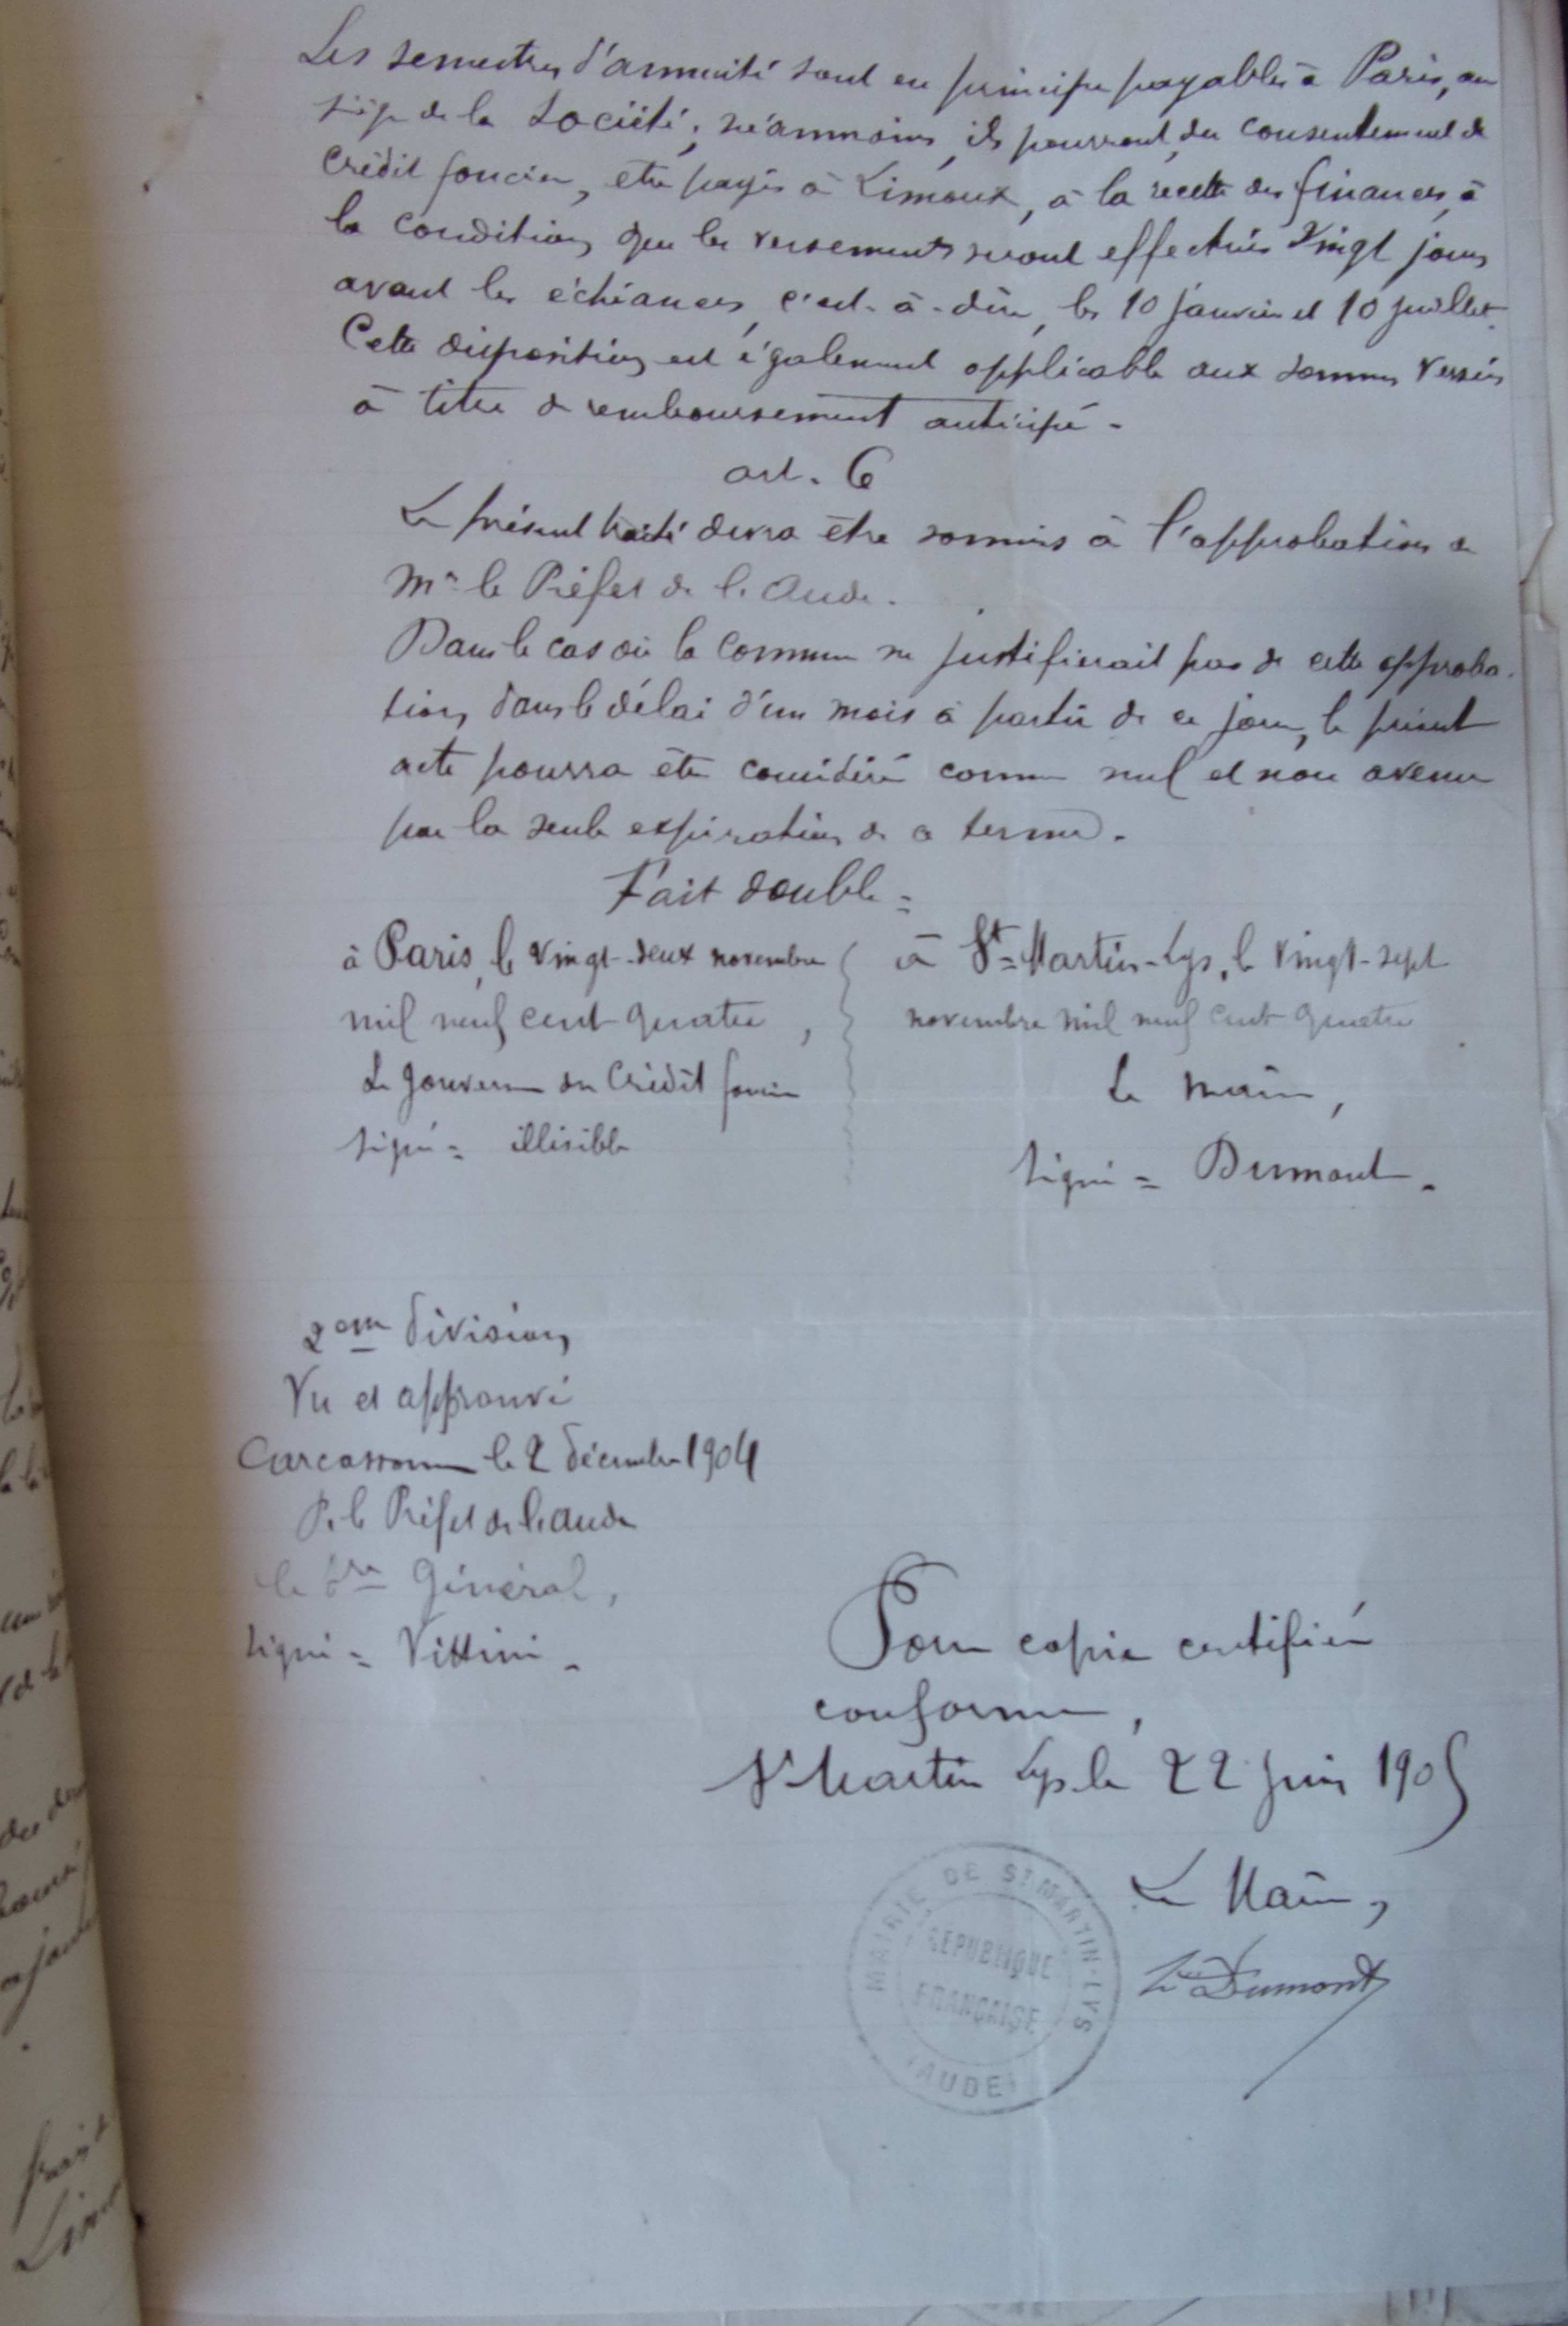 Les semestres d'annuité sont en principe payables à Paris, au
siège de la Société; néanmoins, ils pourront, du consentement du
Crédit foncier, être payés à Limoux, à la recette des finances, à
la condition que les versements seront effectués vingt jours
avant les échéances, c'est-à-dire, les 10 janvier et 10 juillet.
Cette disposition est également applicable aux sommes versées
à titre de remboursement anticipé.
art. 6
Le présent traité devra être soumis à l'approbation de
Mr le Préfet de l'Aude.
Dans le cas où la Commune ne justifierait pas de cette approba-
tion, dans le délai d'un mois à partir de ce jour, le présent
acte pourra être considéré comme nul et non avenu
par la seule expiration de ce terme.
Fait double =
à Paris, le vingt-deux novembre
mil neuf cent quatre,
Le Gouverneur du Crédit foncier
signé = illisible
à St=Martin-Lys, le vingt-sept
novembre mil neuf cent quatre
Le maire,
signé = Dumont.
2eme division
Vu et approuvé
Carcassonne le 2 décembre 1904
P. le Préfet de l'aude
le Sre Général,
signé = Vittini.
Pour copie certifiée
conforme,
St Martin Lys le 22 juin 1905
Le Maire,
Dumont
MAIRIE DE ST MARTIN-LYS
REPUBLIQUE
FRANÇAISE
(AUDE)